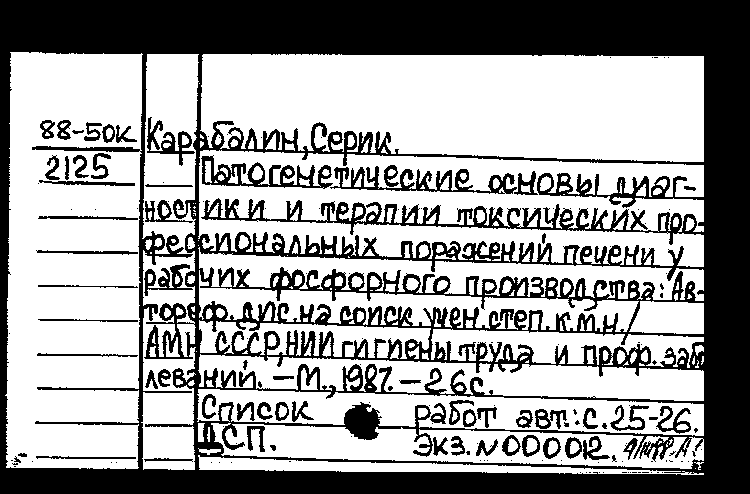 88-50к Карабалин, Серик.
2125 Патогенетические основы диаг-
ностики и терапии токсических про-
фессиональных поражений печени у
рабочих фосфорного производства: Ав-
тореф. дис. на соиск. учен. степ. к.м.н. /
АМН СССР, НИИ гигиены труда и проф. забо
леваний. — М., 1987. — 26 с.
Список работ авт.: с. 25-26.
ДСП. Экз. N 000012.